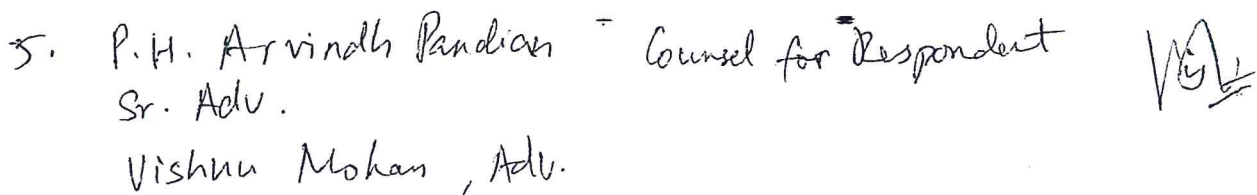 5. P.H. Arvindh Pandian - Counsel for Respondent
Sr. Adv.
Vishnu Mohan, Adv.